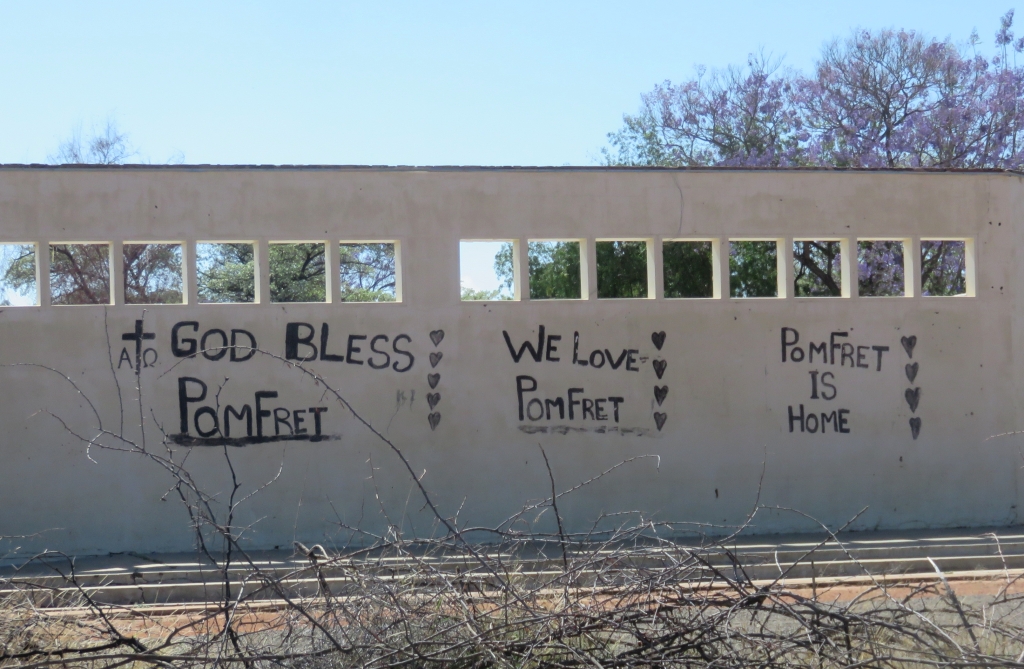 Α Ω GOD BLESS
POMFRET
WE LOVE
POMFRET
POMFRET
IS
HOME